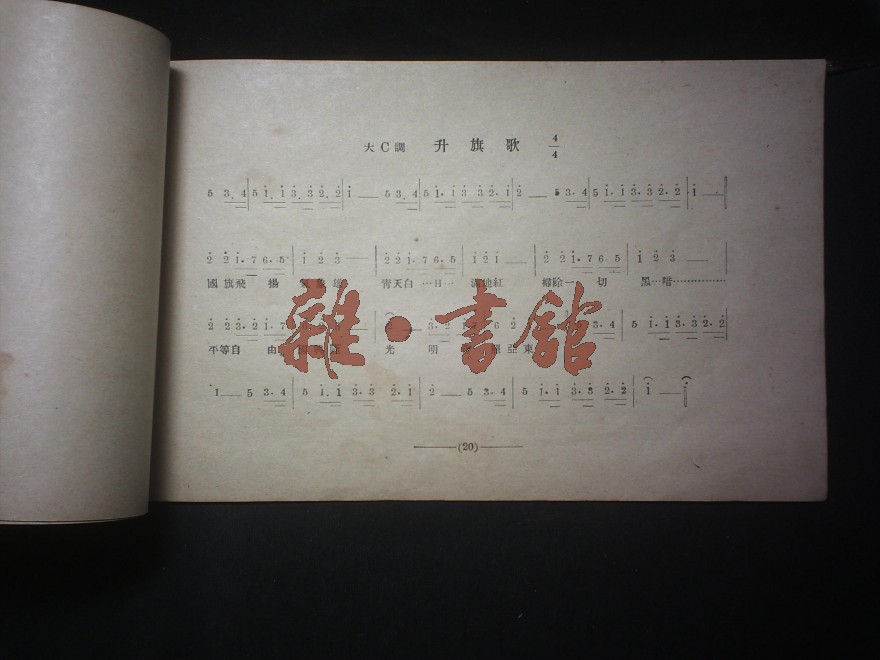 大C調 升旗歌 4/4
5 3.4 | 5 1.1 3.3 2.2 | 1 — 5 3.4 | 5 1.1 3.3 2.1 | 2 — 5 3.4 | 5 1.1 3.3 2.2 | 1 —
2 2 1.7 6.5 | 1 2 3 — | 2 2 1.7 6.5 | 1 2 1 — | 2 2 1.7 6.5 | 1 2 3 —
國旗飛 揚 青天白…日… 滿地紅 掃除一 切 黑…暗……
2 2 3.2 1.7
平等自 由 光 明 亞東
雜·書館
1 — 5 3.4 | 5 1.1 3.3 2.1 | 2 — 5 3.4 | 5 1.1 3.3 2.2 | 1 —
(20)